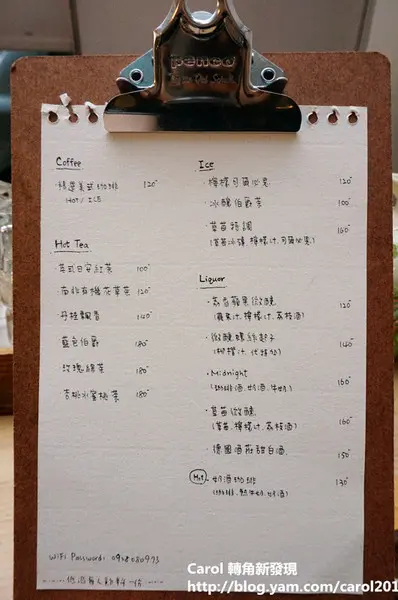 penco
Coffee
・精選美式咖啡 120
HOT / ICE
Hot Tea
・英式早安紅茶 100
・南非有機花草茶 120
・丹桂飄香 140
・藍色伯爵 180
・玫瑰綠茶 180
・杏桃水蜜桃茶 180
Ice
・檸檬可爾必思 120
・冰釀伯爵茶 100
・草莓特調 160
(草莓冰磚、檸檬汁、可爾必思)
Liquor
・荔香蘋果微醺 120
(蘋果汁、檸檬汁、荔枝酒)
・微醺螺絲起子 140
(柳橙汁、伏特加)
・Midnight 160
(咖啡酒、奶酒、牛奶)
・草莓微醺 160
(草莓、檸檬汁、荔枝酒)
・德國酒莊甜白酒 150
Hot 奶酒咖啡 130
(咖啡、熱牛奶、奶酒)
WiFi Password: 0928080973
Carol 轉角新發現
http://blog.yam.com/carol201